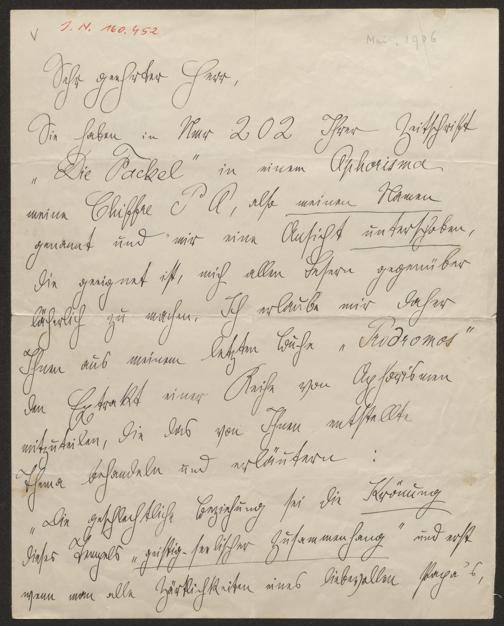 J. N. 160.452
Mai. 1906
Sehr geehrter Herr,
Sie haben in Nmr 202 Ihrer Zeitschrift
„Die Fackel" in einem Aphorisma
meine Chiffre P A, also meinen Namen
genannt und mir eine Ansicht unterschoben,
die geeignet ist, mich allen Lesern gegenüber
lächerlich zu machen. Ich erlaube mir daher
Ihnen aus meinem letzten Buche „Prodromos"
den Extrakt einer Reihe von Aphorismen
mitzuteilen, die das von Ihnen entstellte
Thema behandeln und erläutern :
„die geschlechtliche Beziehung sei die Krönung
dieses Tempels „geistig-seelischer Zusammenhang" und erst
wenn man alle Zärtlichkeiten eines liebevollen Papa's,